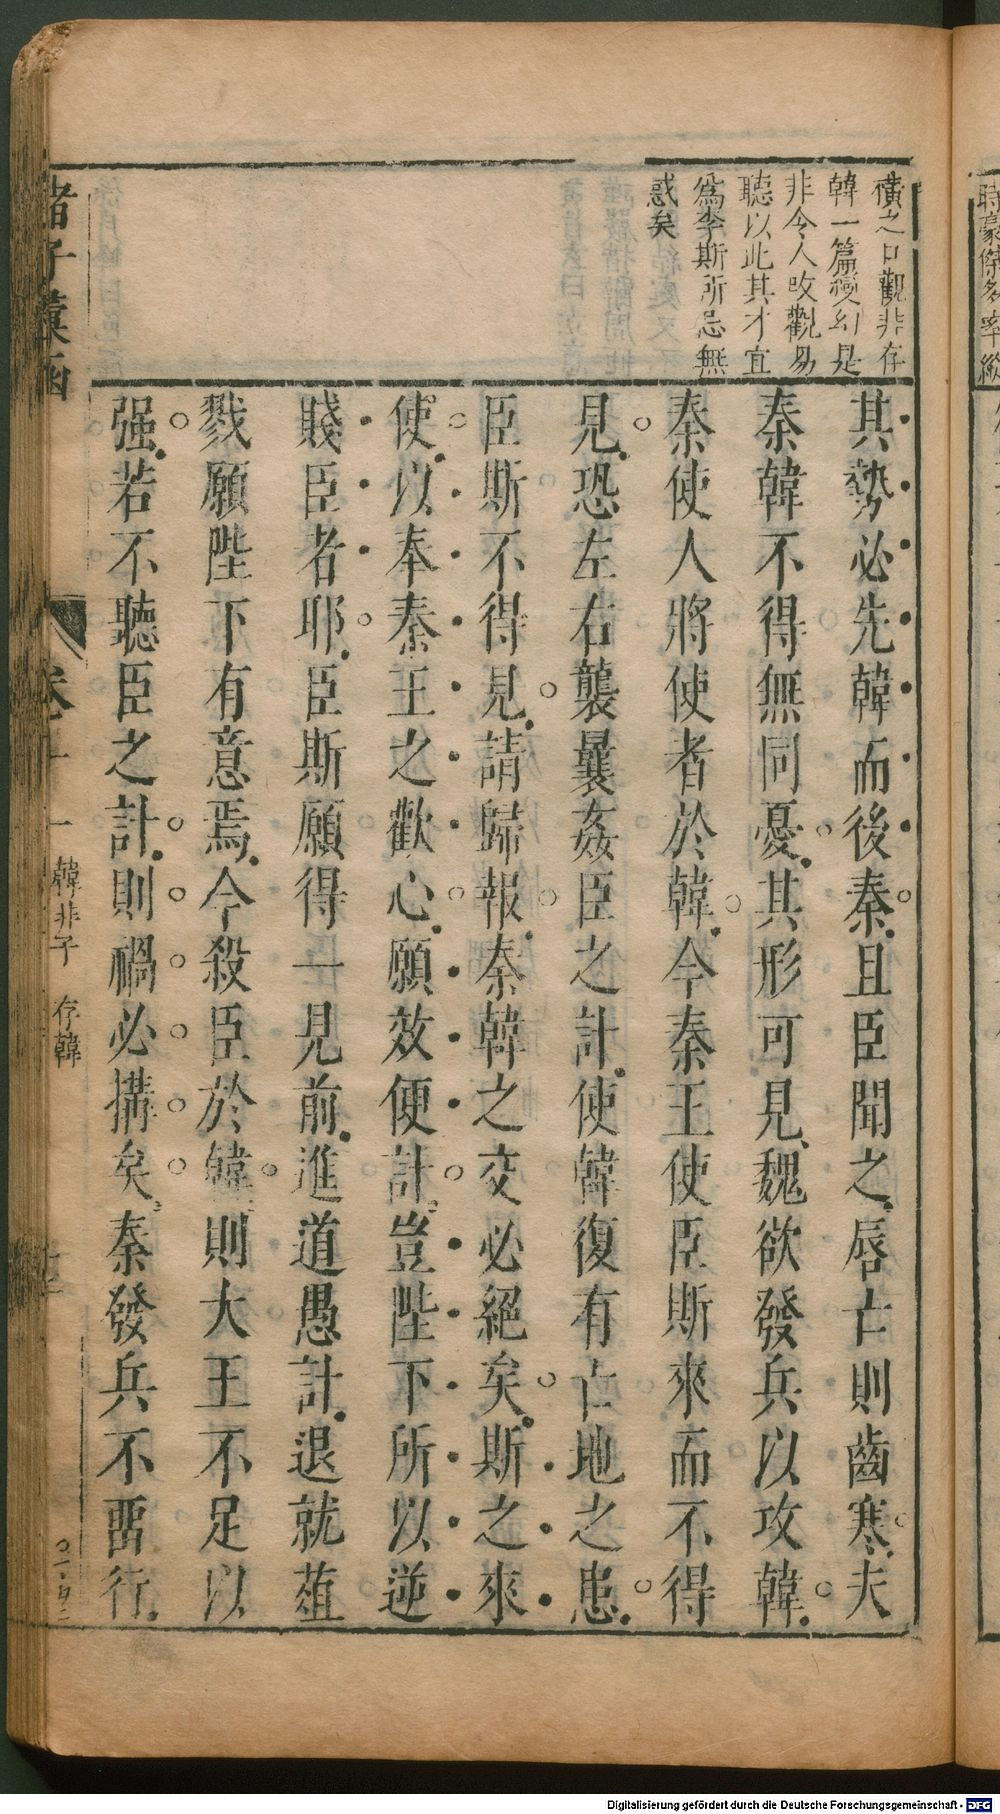 橫之口觀非存
韓一篇變幻是
非令人改觀易
聽以此其才宜
爲李斯所忌無
惑矣
其勢必先韓而後秦且臣聞之唇亡則齒寒夫
秦韓不得無同憂其形可見魏欲發兵以攻韓
秦使人將使者於韓今秦王使臣斯來而不得
見恐左右襲曩姦臣之計使韓復有亡地之患
臣斯不得見請歸報秦韓之交必絕矣斯之來
使以奉秦王之歡心願效便計豈陛下所以逆
賤臣者耶臣斯願得一見前進道愚計退就葅
戮願陛下有意焉今殺臣於韓則大王不足以
强若不聽臣之計則禍必搆矣秦發兵不畱行
諸子彙函
韓非子 存韓
時豪傑多率縱
Digitalisierung gefördert durch die Deutsche Forschungsgemeinschaft - DFG